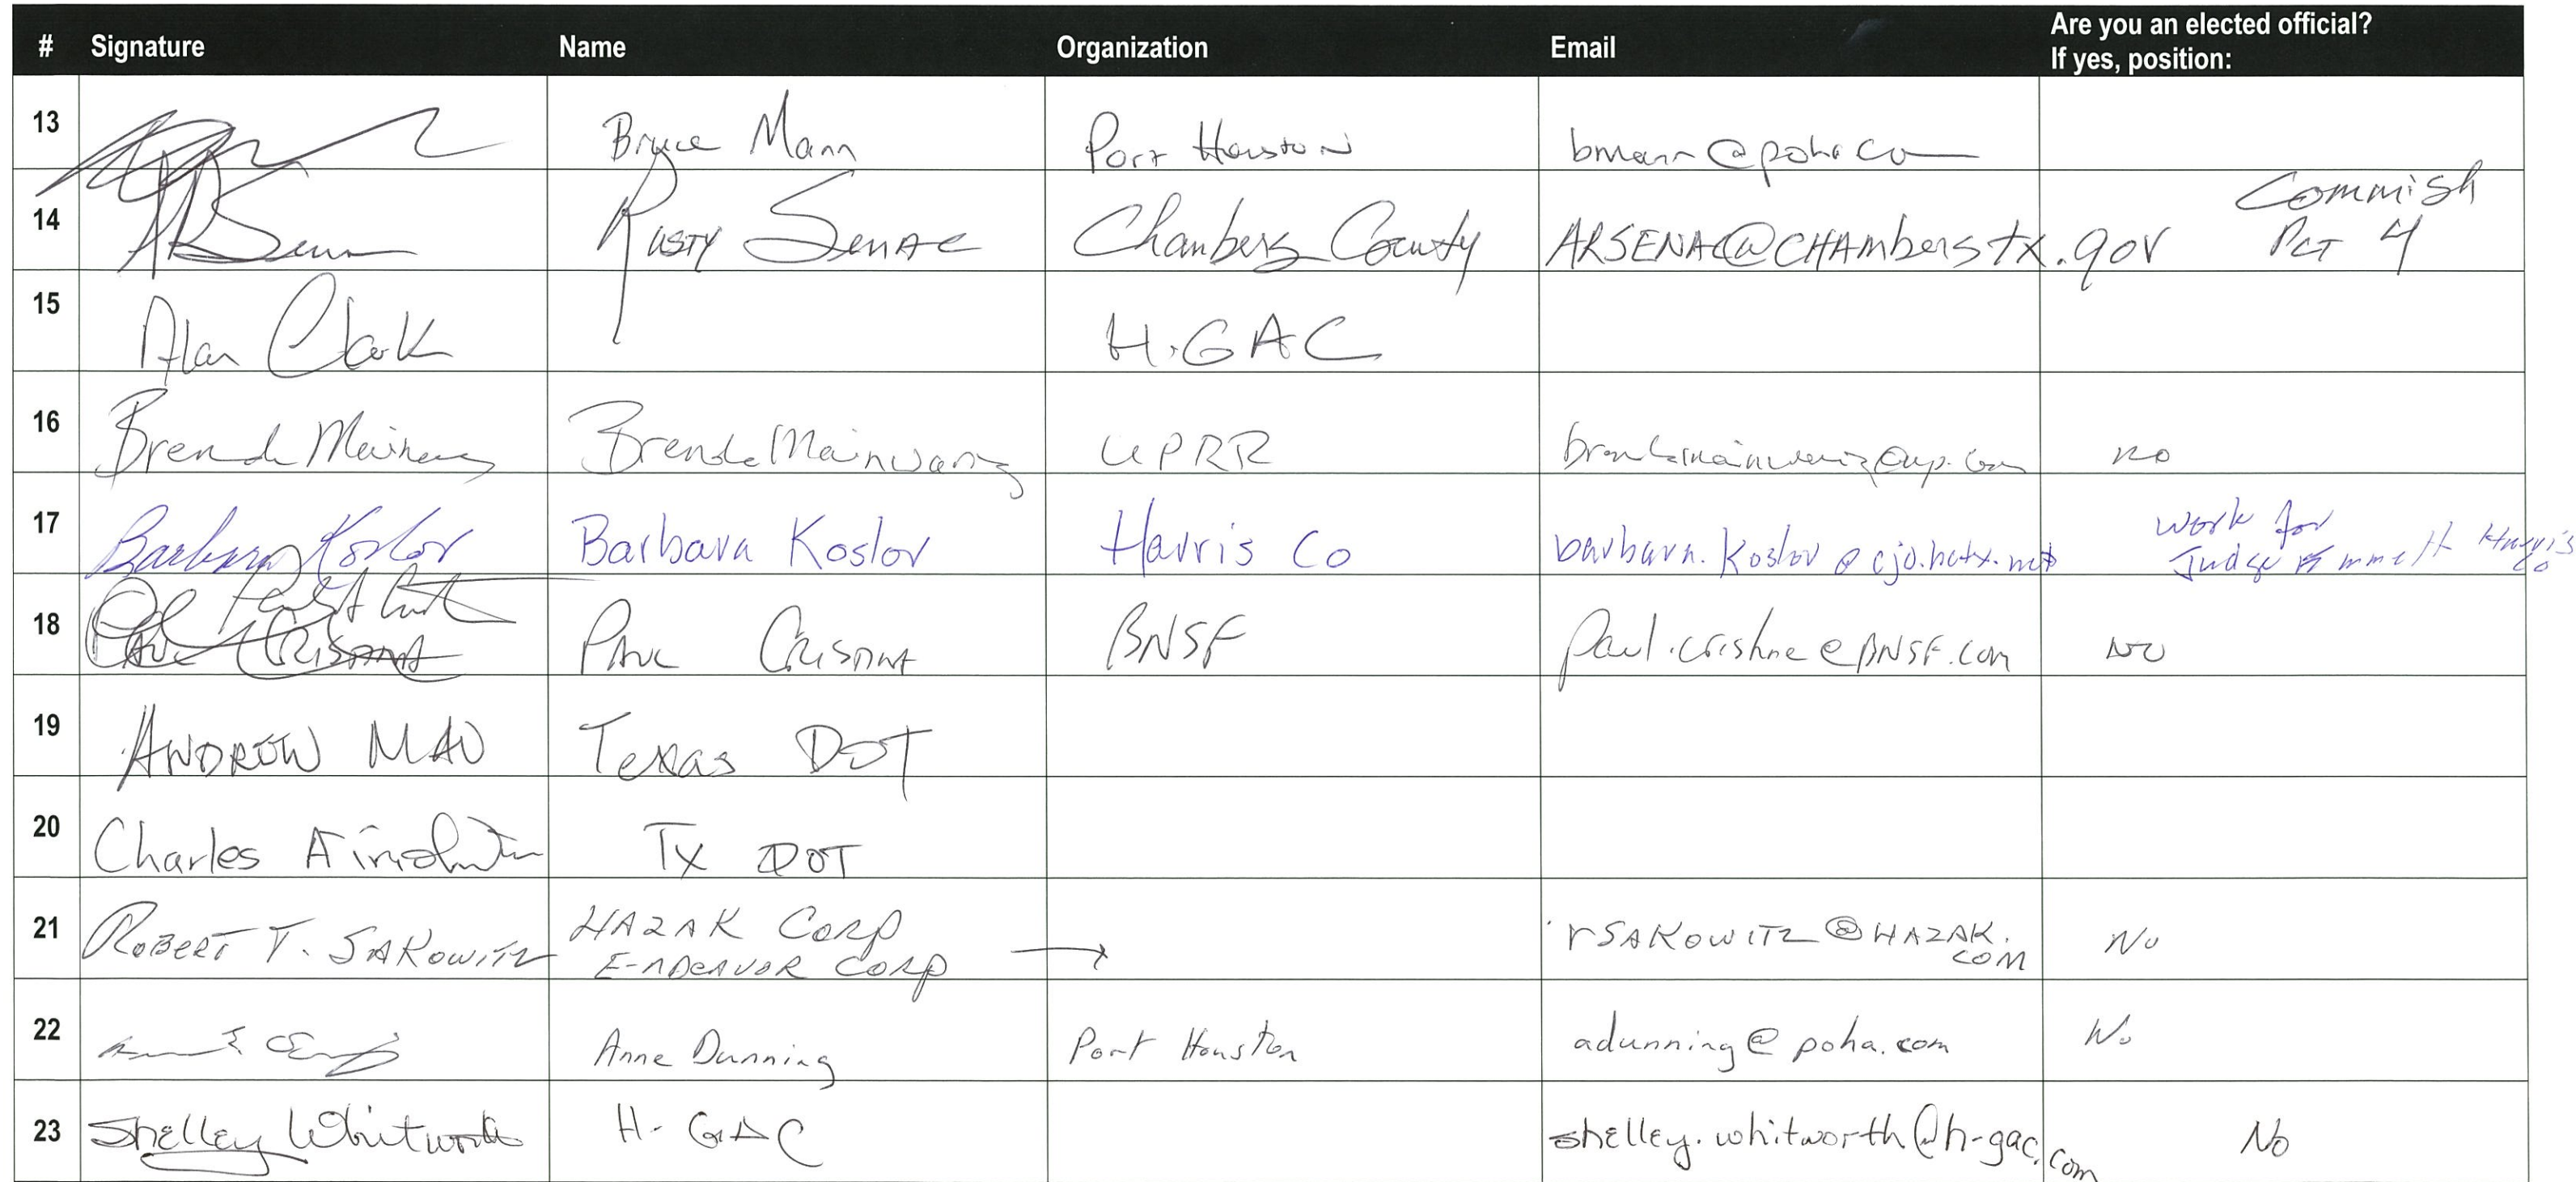 # Signature Name Organization Email Are you an elected official?
If yes, position:
13 Bryce Mann Port Houston
14 Rusty Senac Chambers County ARSENAC@CHAmberstx.gov Commish
Pct 4
15 Alan Clark H-GAC
16 Brenda Mainwaring Brenda Mainwaring UPRR no
17 Barbara Koslov Barbara Koslov Harris Co barbara.Koslov@cjo.hctx.net Work for
Judge Emmett Harris
Co
18 PAUL CRISTINA BNSF Paul.cristina@BNSF.com NO
19 ANDREW MAO Texas DOT
20 Charles Airiohuodion Tx DOT
21 ROBERT T. SAKOWITZ HAZAK CORP → rSAKOWITZ@HAZAK. No
ENDEAVOR CORP COM
22 Anne Dunning Port Houston adunning@poha.com No
23 Shelley Whitworth H-GAC shelley.whitworth@h-gac.com No